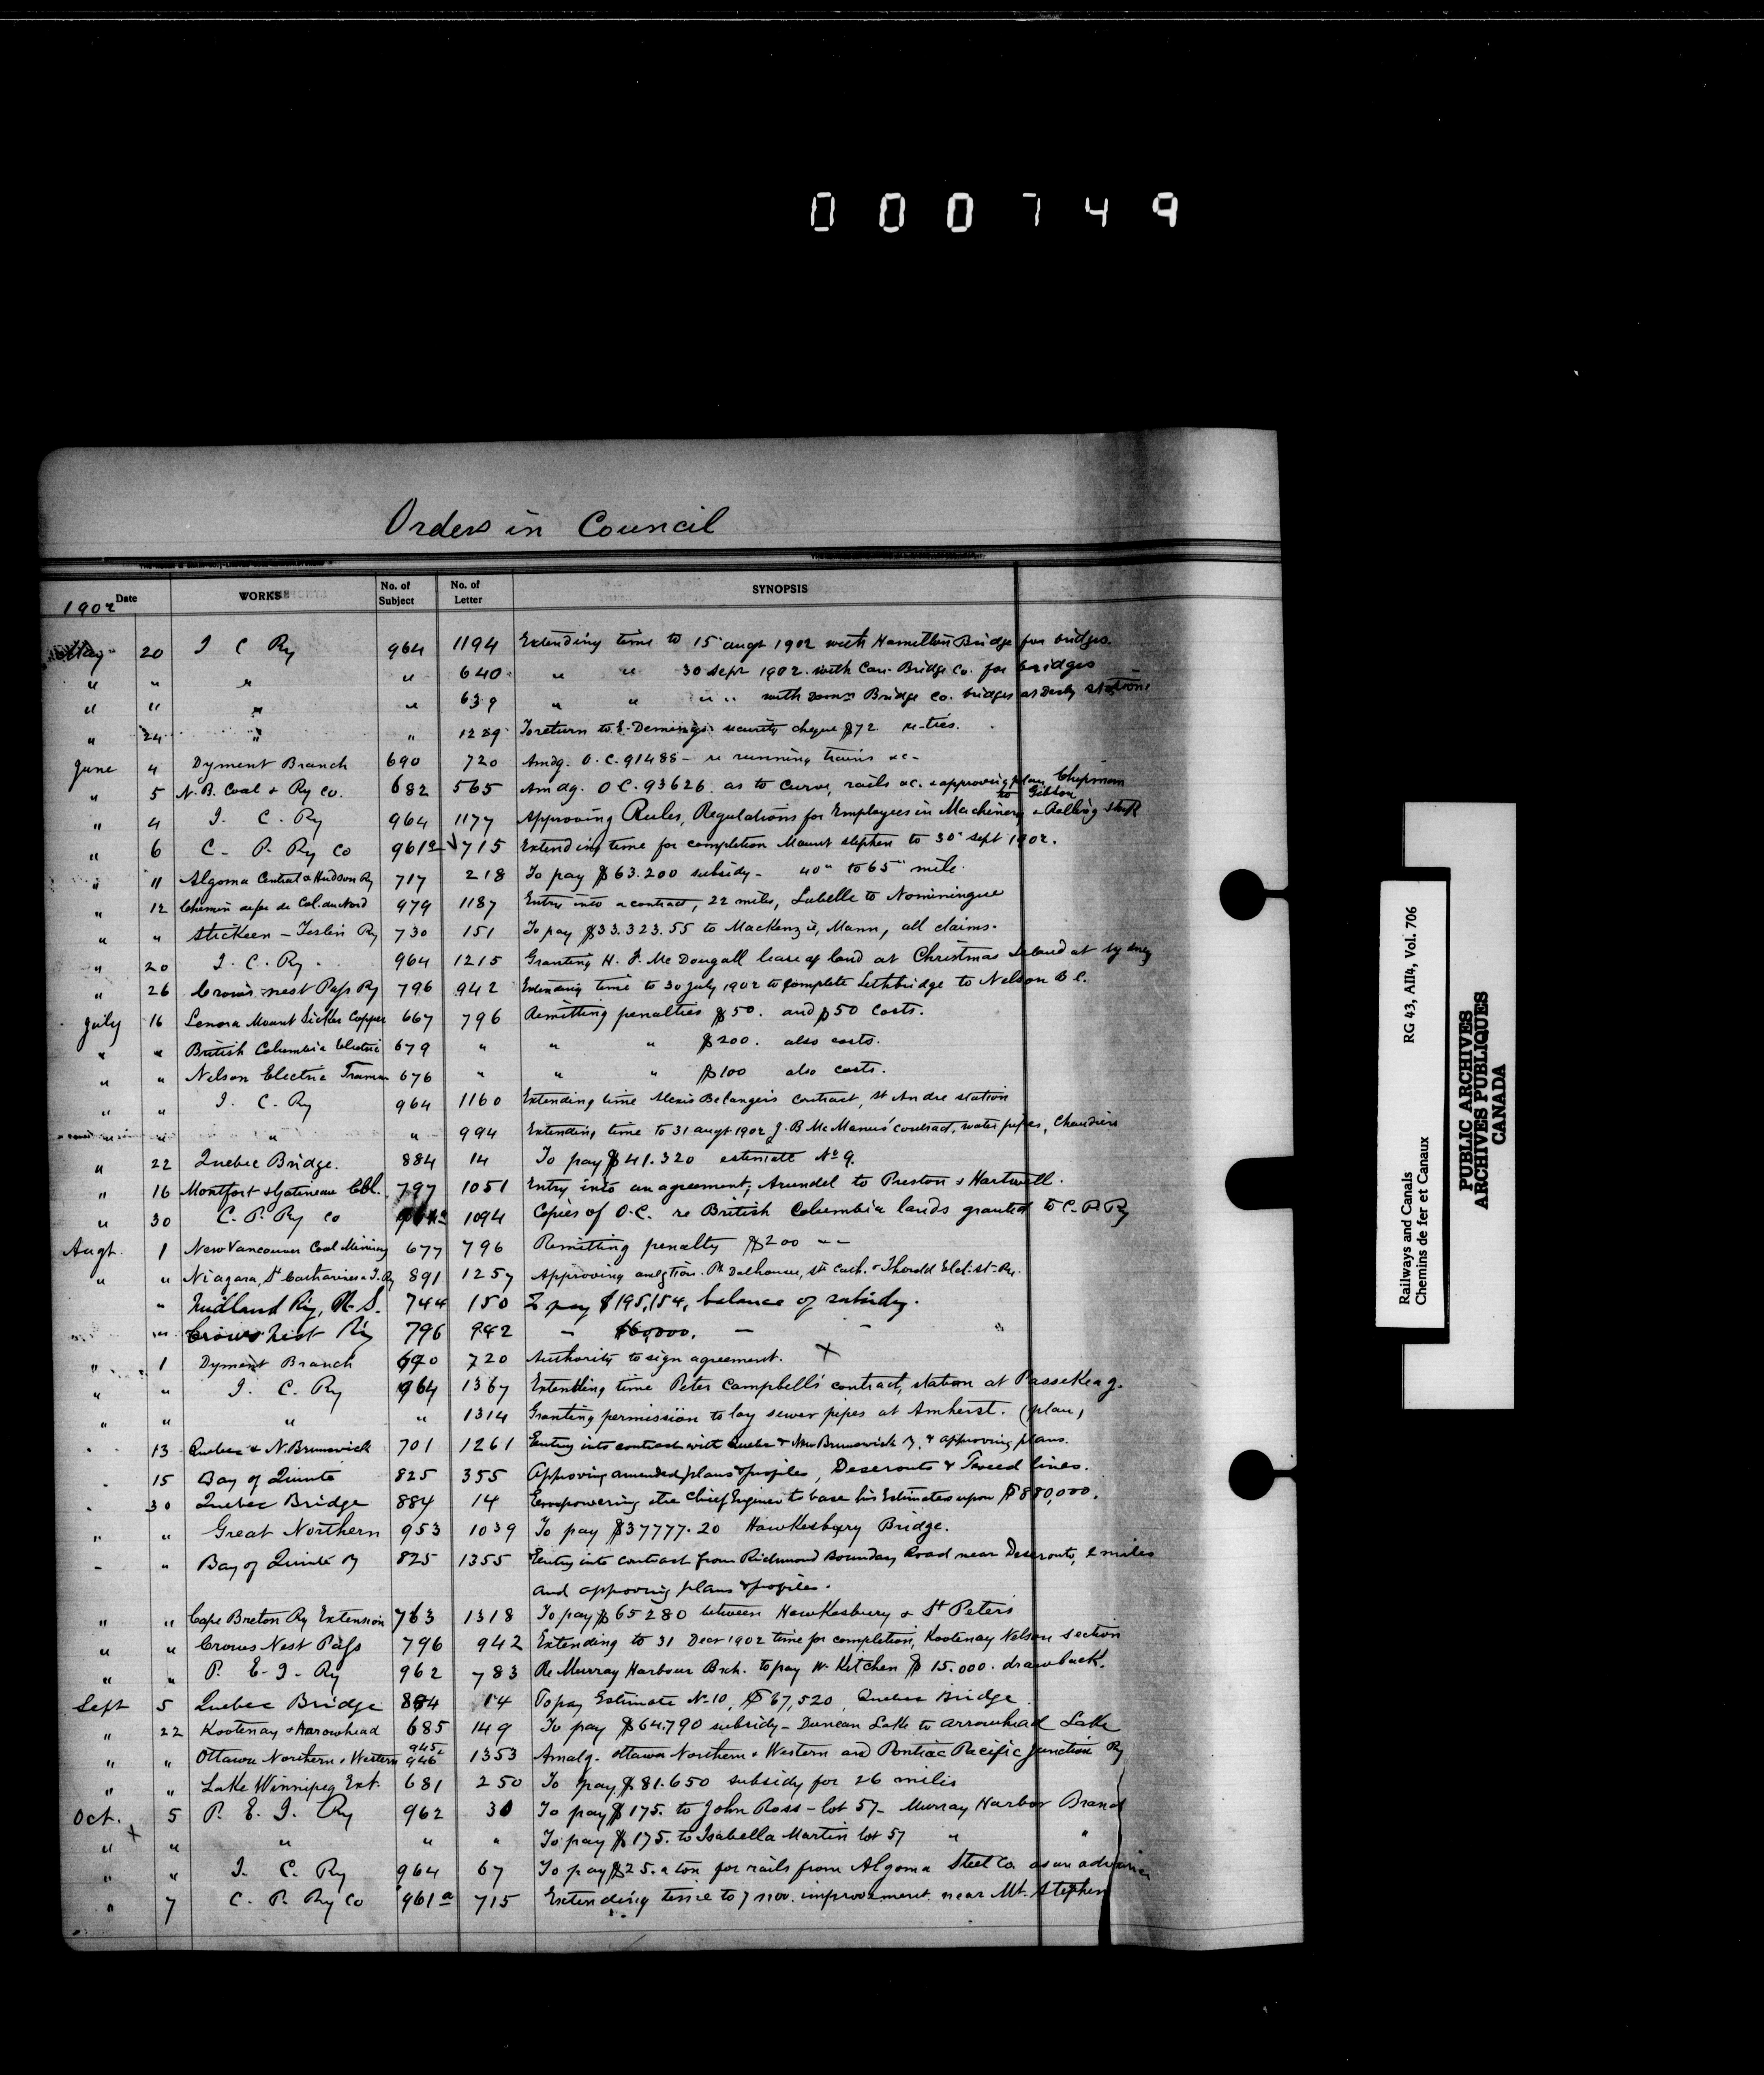 000749
Orders in Council
1902 Date WORKS No. of Subject No. of Letter SYNOPSIS
May 20 I C Ry 964 1194 Extending time to 15" augt 1902 with Hamilton Bridge for bridges.
" " " " 640 " " 30 Sept 1902. with Can. Bridge Co. for bridges
" " " " 639 " " " " with Domn Bridge Co. bridges at Derby station
" 24 " " 1229 To return to E. security cheque $72 re-ties.
June 4 Dyment Branch 690 720 Amdg. O.C. 91488 - re running trains &c-
" 5 N.B. Coal & Ry Co. 682 565 Amdg. O C. 93626. as to curve, rails &c. & approving plan Chipman to Gibson
" 4 I. C. Ry 964 1177 Approving Rules, Regulations for Employees in Machinery & Rolling Stock
" 6 C. P. Ry Co 961a 715 Extending time for completion Mount Stephen to 30" Sept 1902.
" 11 Algoma Central & Hudson Ry 717 218 To pay $63.200 subsidy - 40" to 65" mile.
" 12 Chemin de fer de Col. du Nord 979 1187 Entry into a contract, 22 miles, Labelle to Nominingue
" " Stickeen - Teslin Ry 730 151 To pay $33.323.55 to Mackenzie, Mann, all claims.
" 20 I. C. Ry. 964 1215 Granting H. F. McDougall lease of land at Christmas Island at Sydney
" 26 Crow's nest Pass Ry 796 942 Extending time to 30 July 1902 to complete Lethbridge to Nelson B C.
July 16 Lenora Mount Sicker Copper 667 796 Remitting penalties $50. and $50 costs.
" " British Columbia Electric 679 " " " $200. also costs.
" " Nelson Electric Tramw 676 " " " $100 also costs.
" " I. C. Ry 964 1160 Extending time Alexis Belanger's contract, St Andre station
" " " " 994 Extending time to 31 augt 1902 J. B McManus' contract, water pipes, Chaudiere
" 22 Quebec Bridge. 884 14 To pay $41.320 estimate No 9.
" 16 Montfort & Gatineau Col. 797 1051 Entry into an agreement; Arundel to Preston & Hartwell.
" 30 C. P. Ry Co 1094 Copies of O.C. re British Columbia lands granted to C. P Ry
Augt. 1 New Vancouver Coal Mining 677 796 Remitting penalty $200 --
" " Niagara, St Catharines & T. Ry 891 1257 Approving Pt Dalhousie, St Cath. & Thorold Elec. St. Ry.
" Midland Ry, N. S. 744 150 To pay $195,154, balance of subsidy.
" Crows Nest Ry 796 942 - $60,000. - - "
" 1 Dyment Branch 690 720 Authority to sign agreement. X
" " I. C. Ry 964 1367 Extending time Peter Campbell's contract, station at Passekeag.
" " " " 1314 Granting permission to lay sewer pipes at Amherst. (plan)
" 13 Quebec & N. Brunswick 701 1261 Entry into contract with Quebec & New Brunswick Ry. & approving plans.
" 15 Bay of Quinté 825 355 Approving amended plans & profiles, Deseronto & Tweed lines.
" 30 Quebec Bridge 884 14 Empowering the Chief Engineer to base his Estimates upon $880,000.
" " Great Northern 953 1039 To pay $37777.20 Hawkesbury Bridge.
" " Bay of Quinté Ry 825 1355 Entry into contract from Richmond Boundary Road near Deseronto, 2 miles
and approving plans & profiles.
" " Cape Breton Ry Extension 763 1318 To pay $65280 between Hawkesbury & St Peters
" " Crows Nest Pass 796 942 Extending to 31 Decr 1902 time for completion, Kootenay Nelson section
" " P. E. I. Ry 962 783 Re Murray Harbour Brch. to pay W. Kitchen $15.000. drawback.
Sept 5 Quebec Bridge 884 14 To pay Estimate No. 10, $67,520, Quebec Bridge
" 22 Kootenay & Arrowhead 685 149 To pay $64.790 subsidy - Duncan Lake to Arrowhead Lake
" " Ottawa Northern & Western 945 946 1353 Amalg. Ottawa Northern & Western and Pontiac Pacific Junction Ry
" " Lake Winnipeg Ext. 681 250 To pay $81.650 subsidy for 26 miles
Oct. 5 P. E. I. Ry 962 30 To pay $175. to John Ross - lot 57 - Murray Harbor Branch
" X " " " " To pay $175. to Isabella Martin lot 57 " "
" " I. C. Ry 964 67 To pay $25. a ton for rails from Algoma Steel Co. as an advance
" 7 C. P. Ry Co 961a 715 Extending time to 7 Nov. improvement near Mt. Stephen
Railways and Canals RG 43, AII4, Vol. 706
Chemins de fer et Canaux
PUBLIC ARCHIVES
ARCHIVES PUBLIQUES
CANADA